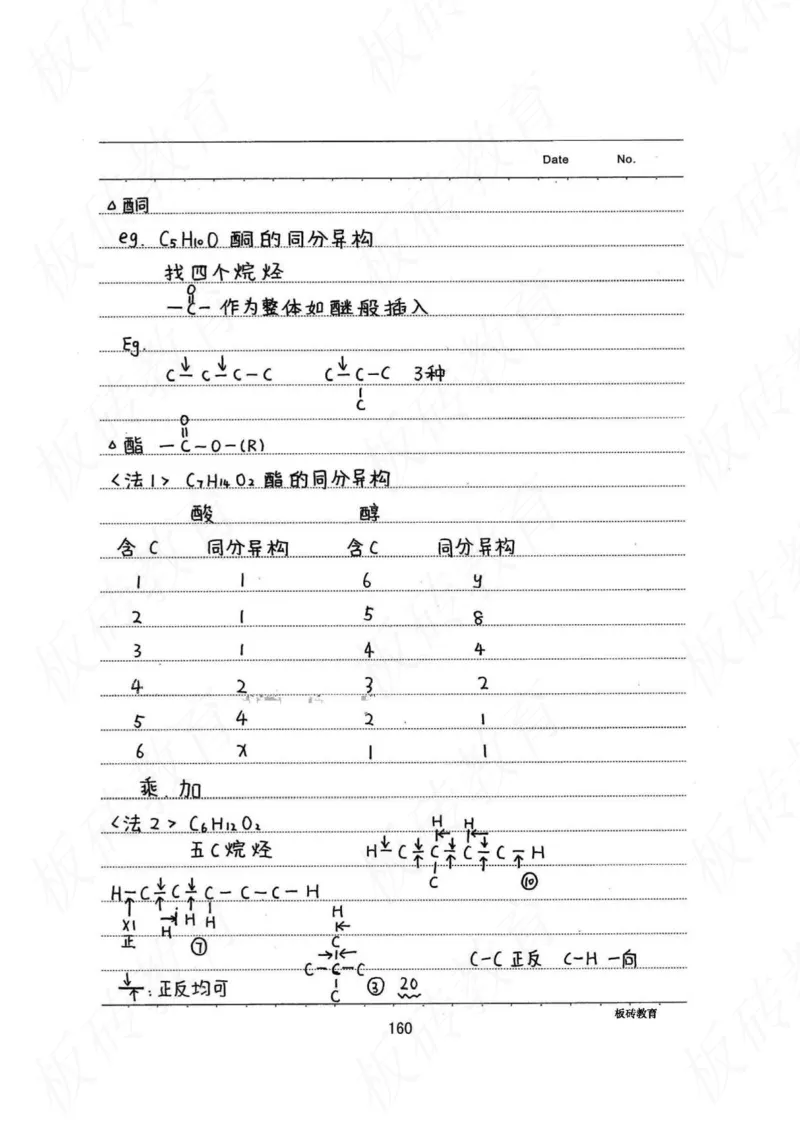 Date No.
△酮
eg. C₅H₁₀O 酮的同分异构
找四个烷烃
O
‖
—C— 作为整体如醚般插入
Eg.
C—C—C—C C—C—C 3种
C
O
‖
△酯 —C—O—(R)
<法1> C₇H₁₄O₂ 酯的同分异构
酸 醇
含C 同分异构 含C 同分异构
1 1 6 y
2 1 5 8
3 1 4 4
4 2 3 2
5 4 2 1
6 x 1 1
乘.加
<法2> C₆H₁₂O₂
H H
五C烷烃 H—C—C—C—C—H
C ⑩
H—C—C—C—C—C—H
X1 H H
正 H ⑦
H
C
C—C—C
C ③ 20
C—C 正反 C—H 一向
:正反均可
板砖教育
160
板砖教育